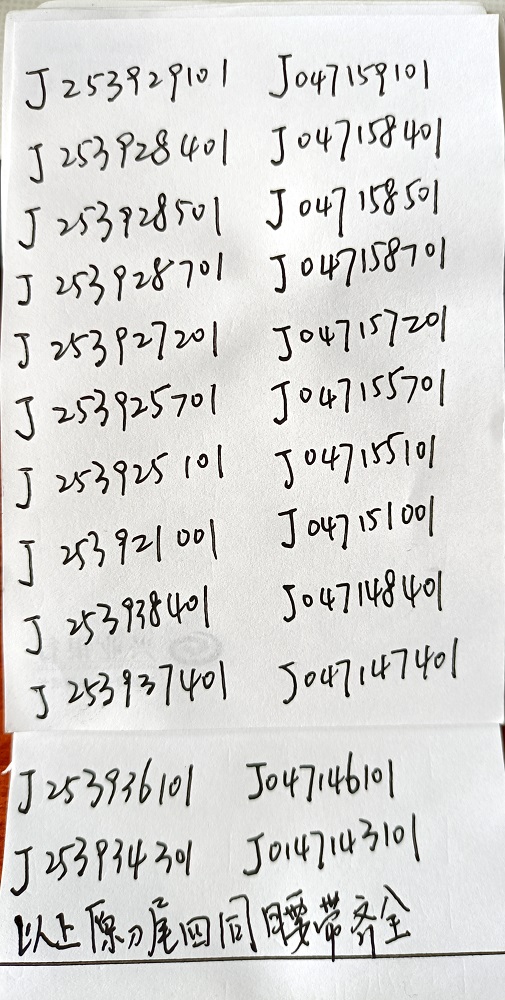 J253929101 J047159101
J253928401 J047158401
J253928501 J047158501
J253928701 J047158701
J253927201 J047157201
J253925701 J047155701
J253925101 J047155101
J253921001 J047151001
J253938401 J047148401
J253937401 J047147401
J253936101 J047146101
J253934301 J0147143101
以上原刀尾四同腰带齐全